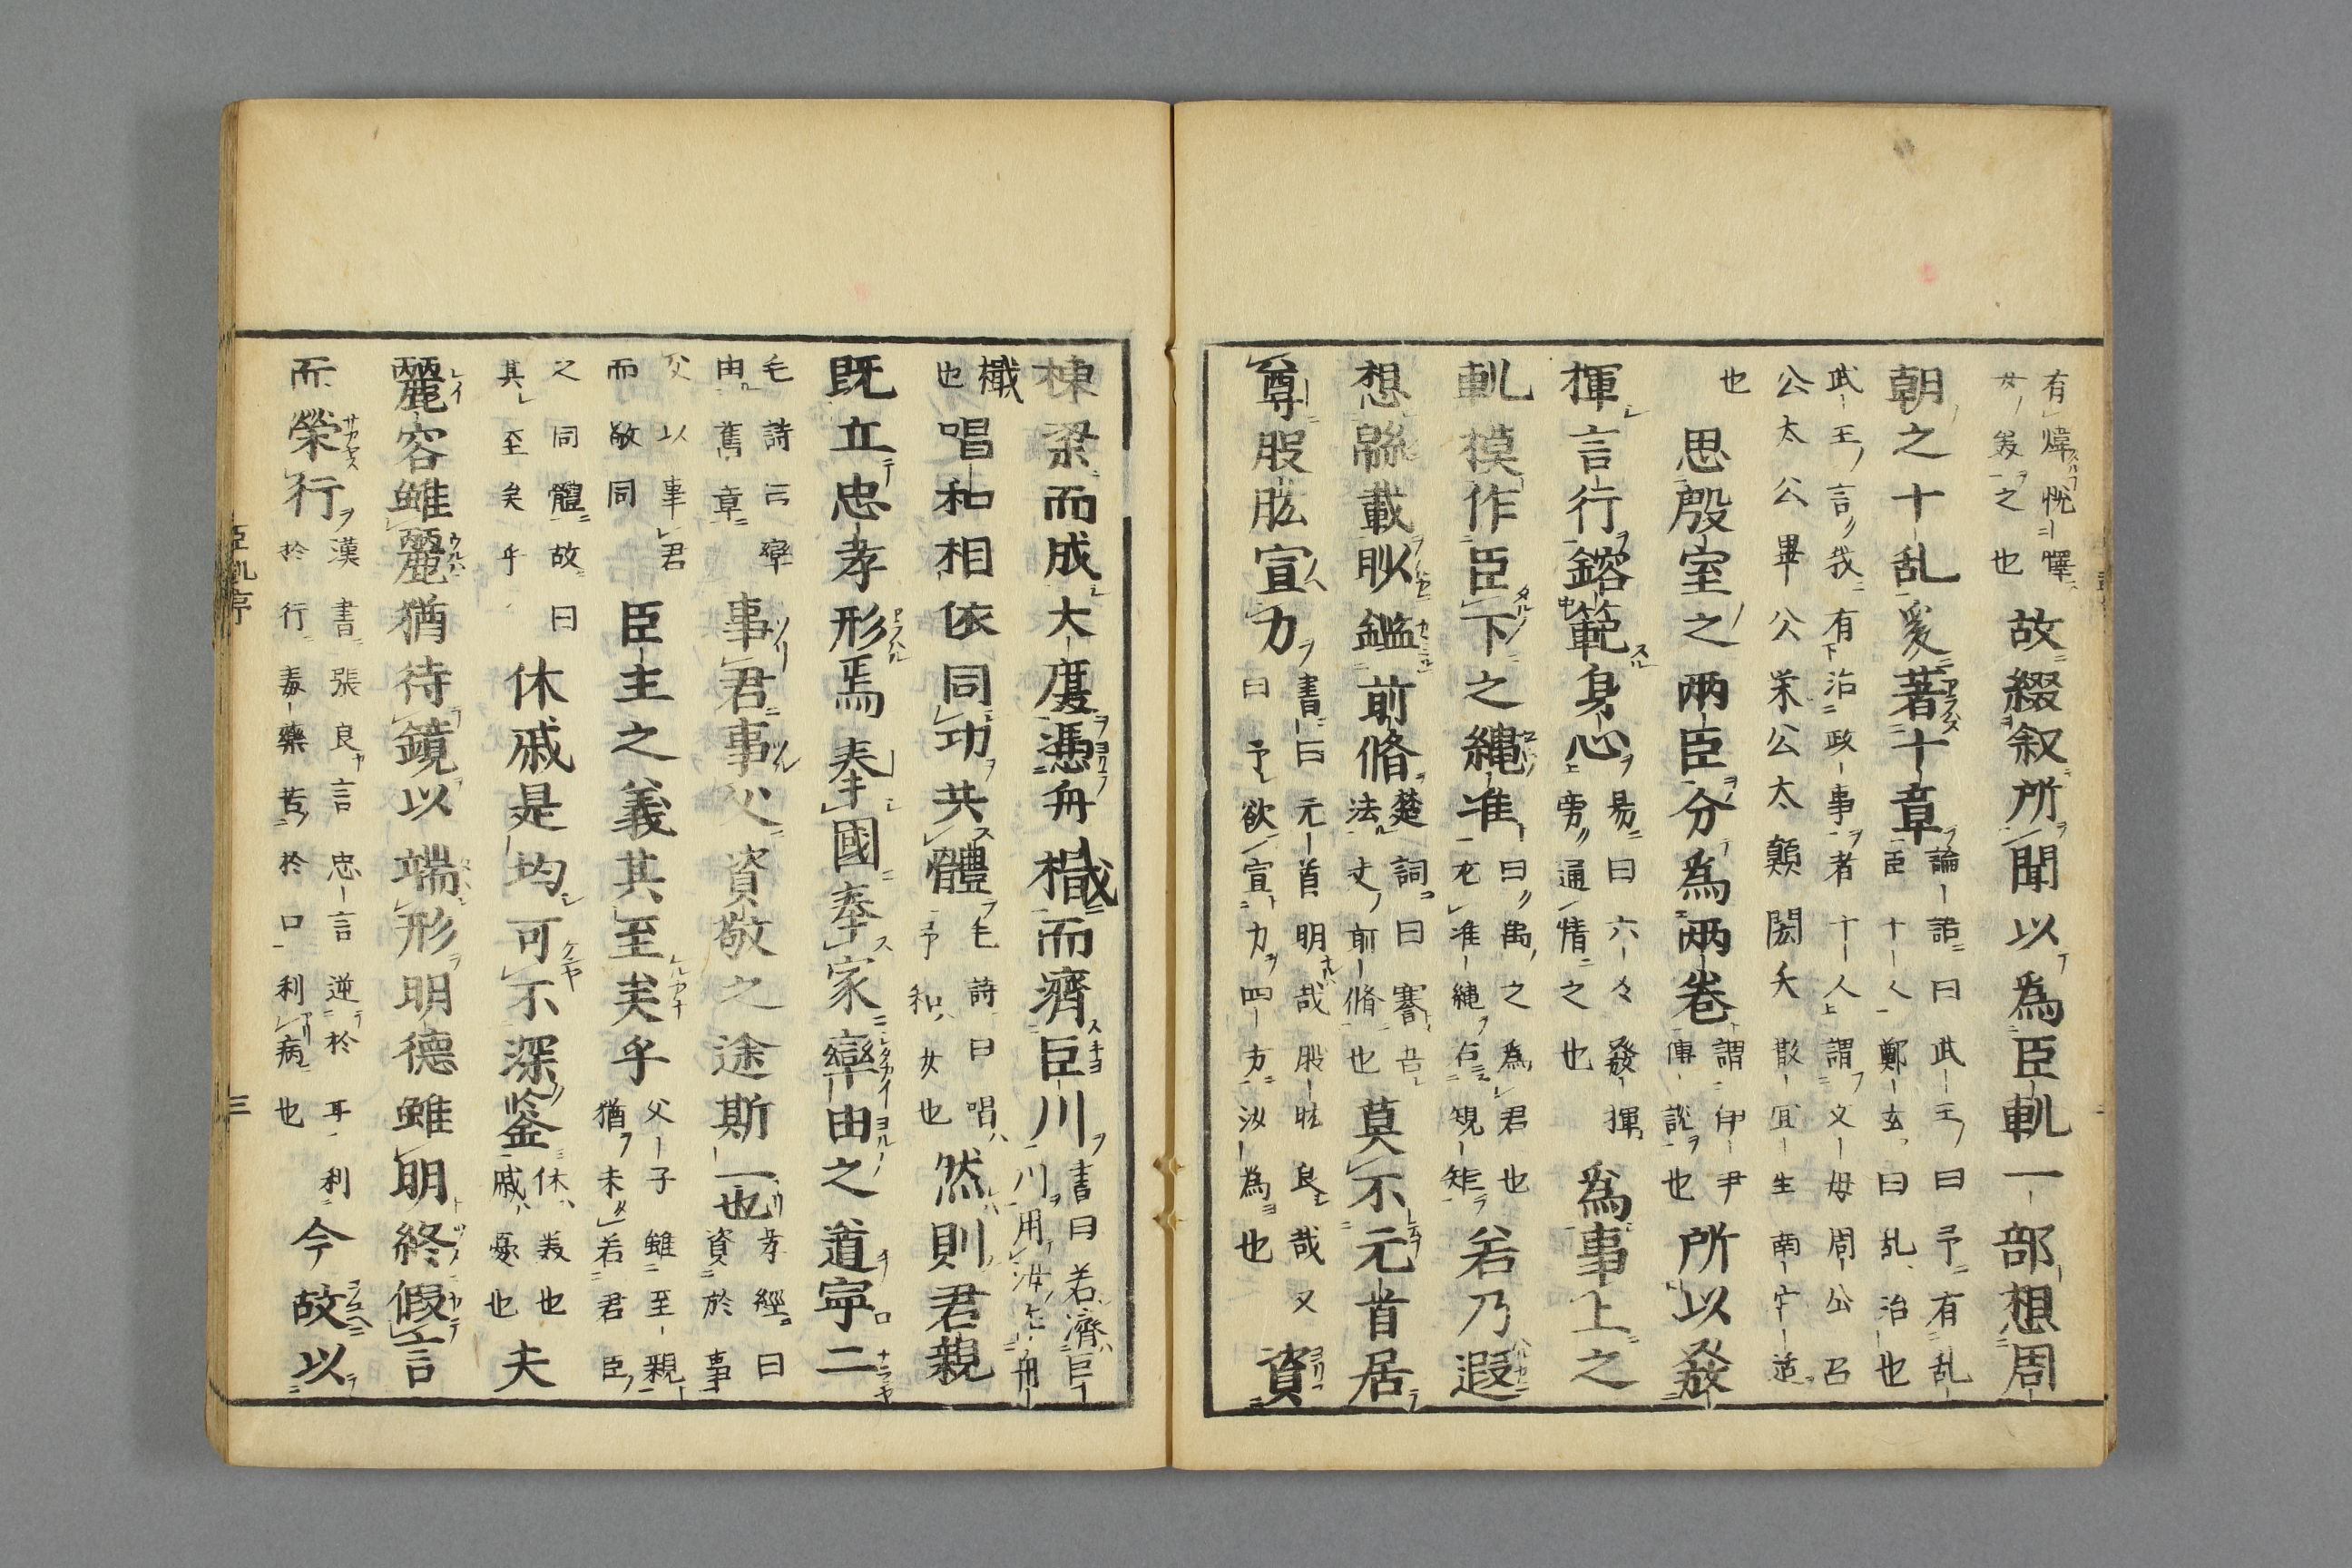 有煒悅懌
女美之也故綴叙所聞以為臣軌一部想周
朝之十乱爰著十章論語曰武王曰予有乱
臣十人鄭玄曰乱治也
武王言我有治政事者十人謂文母周公召
公太公畢公榮公太顛閎夭散宜生南宮适
也
思殷室之兩臣分為兩卷謂伊尹
傳說也所以發
揮言行鎔範身心易曰六爻發揮
旁通情之也為事上之
軌模作臣下之繩准曰禹之為君也
左准繩右規矩若乃遐
想緜載眇鑑前脩楚詞曰謇吾
法夫前脩也莫不元首居
尊股肱宣力書曰元首明哉股肱良哉又
曰予欲宣力四方汝為也資
棟梁而成大廈憑舟檝而濟臣川書曰若濟巨
川用汝作舟
檝
也唱和相依同功共體毛詩曰唱
予和女也然則君親
既立忠孝形焉奉國奉家率由之道寧二
毛詩云率
由舊章事君事父資敬之途斯一也孝經曰
資於事
父以事君
而敬同臣主之義其至矣乎父子雖至親
猶未若君臣
之同體故曰
其至矣乎休戚是均可不深鉴休美也
戚憂也夫
麗容雖麗猶待鏡以端形明德雖明終假言
而榮行漢書張良言忠言逆於耳利
於行毒藥苦於口利病也今故以
臣軌序
三